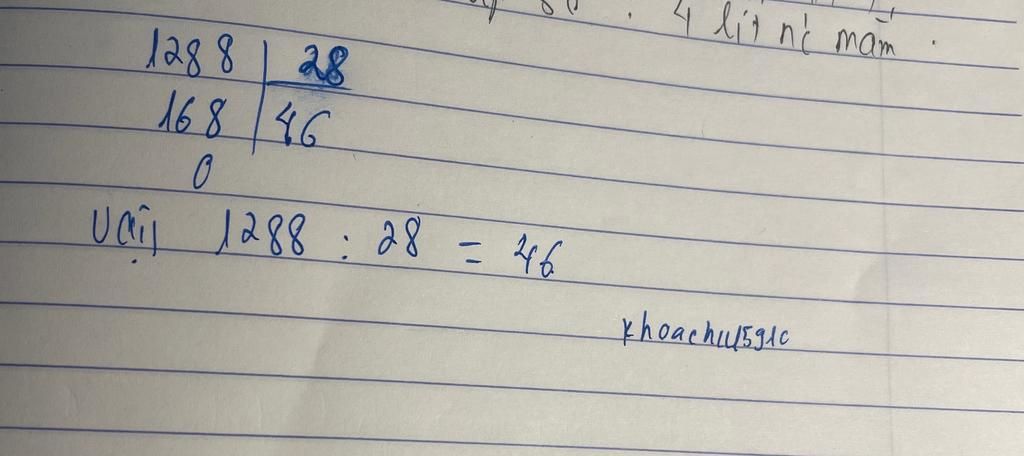 4 lít nc mắm.
1288 | 28
168 | 46
0
Vậy 1288 : 28 = 46